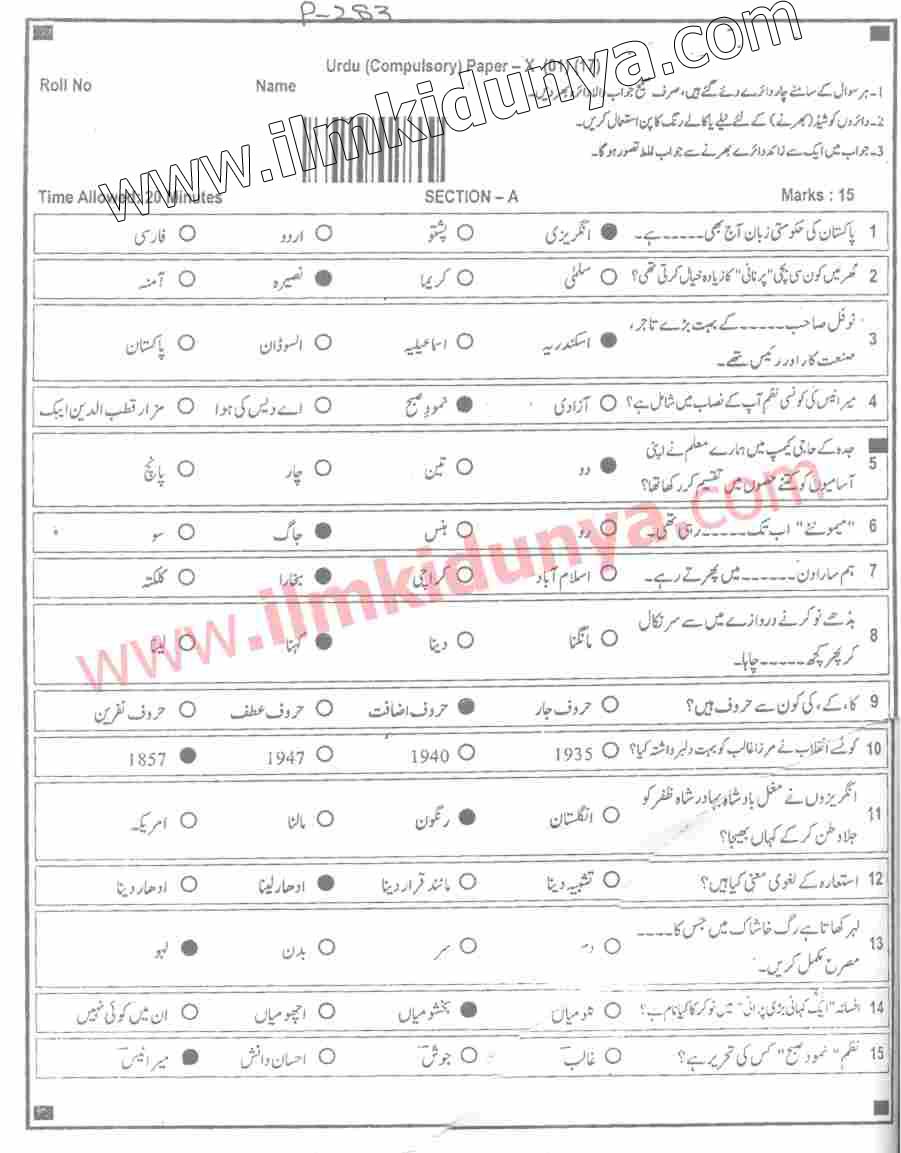 P-283
www.ilmkidunya.com
Urdu (Compulsory) Paper – X (01) (17)
Roll No Name
1- ہر سوال کے سامنے چار دائرے دئے گئے ہیں، صرف صحیح جواب والا دائرہ بھر دیں۔
2- دائروں کو شیڈ (بھرنے) کے لئے نیلے یا کالے رنگ کا پن استعمال کریں۔
3- جواب میں ایک سے زائد دائرے بھرنے سے جواب غلط تصور ہو گا۔
Time Allowed: 20 Minutes SECTION – A Marks : 15
1 پاکستان کی حکومتی زبان آج بھی ----- ہے۔ انگریزی پشتو اردو فارسی
2 گھر میں کون سی بچی "پرنانی" کا زیادہ خیال کرتی تھی؟ سلمٰی کریما نصیرہ آمنہ
3 نوفل صاحب ----- کے بہت بڑے تاجر،
صنعت کار اور رئیس تھے۔ اسکندریہ اسماعیلیہ السوڈان پاکستان
4 میر انیس کی کونسی نظم آپ کے نصاب میں شامل ہے؟ آزادی نمودِ صبح اے دیس کی ہوا مزار قطب الدین ایبک
5 جدہ کے حاجی کیمپ میں ہمارے معلم نے اپنی
آسامیوں کو کتنے حصّوں میں تقسیم کر رکھا تھا؟ دو تین چار پانچ
6 "میمونے" اب تک ----- رہی تھی۔ رو ہنس جاگ سو
7 ہم سارا دن ------ میں پھرتے رہے۔ اسلام آباد کراچی بخارا کلکتہ
8 بڈھے نوکر نے دروازے میں سے سر نکال
کر پھر کچھ ----- چاہا۔ مانگنا دینا کہنا لینا
9 کا، کے، کی کون سے حروف ہیں؟ حروف جار حروف اضافت حروف عطف حروف نفرین
10 کونسے انقلاب نے مرزا غالب کو بہت دلبرداشتہ کیا؟ 1935 1940 1947 1857
11 انگریزوں نے مغل بادشاہ بہادر شاہ ظفر کو
جلا وطن کر کے کہاں بھیجا؟ انگلستان رنگون مالٹا امریکہ
12 استعارہ کے لغوی معنی کیا ہیں؟ تشبیہ دینا مانند قرار دینا ادھار لینا ادھار دینا
13 لہر کھاتا ہے رگ خاشاک میں جس کا ----
مصرع مکمل کریں۔ سر بدن لہو
14 افسانہ "ایک کہانی بڑی پرانی" میں نوکر کا کیا نام ہے؟ میاں بخشو میاں اچھو میاں ان میں کوئی نہیں
15 نظم "نمود صبح" کس کی تحریر ہے؟ غالب جوش احسان دانش میر انیس
www.ilmkidunya.com